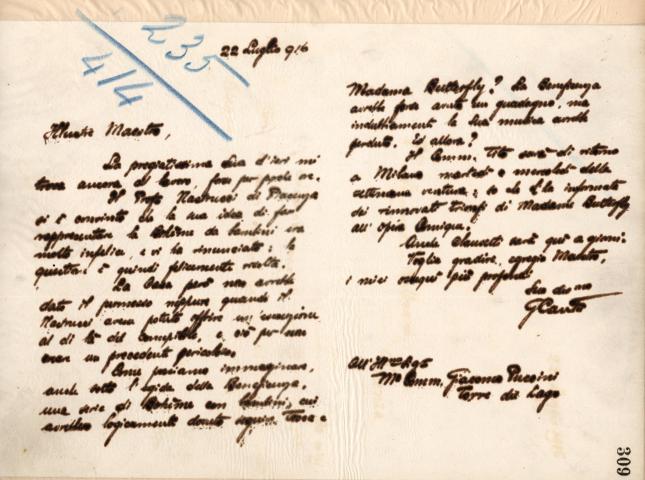 235
4/4
22 Luglio 916
Illustre Maestro,
La pregiatissima Sua d'ieri mi
trova ancora al lavoro, fosse per poche ore.
Il Prof. di Piacenza
si è convinto che la sua idea di far
rappresentare la Bohème da bambini era
molto infelice, e vi ha rinunciato: la
quistione è quindi felicemente risolta.
La Casa però non avrebbe
dato il permesso neppure quando il
avesse potuto offrire un'esecuzione
al di là del compatibile, e ciò per non
creare un precedente pericoloso.
Come possiamo immaginare,
anche sotto l'egida della Beneficenza,
una serie di Bohème con bambini, cui
avrebbero logicamente dovuto seguire Tosca e
Madama Butterfly? La Beneficenza
avrebbe forse avuto un guadagno, ma
indubbiamente la sua musica avrebbe
perduto. Ed allora?
Il Comm. Tito sarà di ritorno
a Milano martedì o mercoledì della
settimana ventura: so che È la informata
dei rinnovati trionfi di Madame Butterfly
all'Opéra Comique.
Anche Clausetti sarà qui a giorni.
Voglia gradire, egregio Maestro,
i miei ossequi più profondi
Suo dev mo
All'Ill.mo Sig.
Mo Comm. Giacomo Puccini
Torre del Lago
309